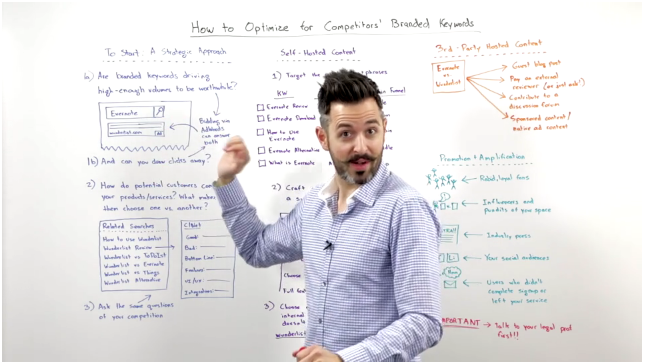 How to Optimize for Competitors' Branded Keywords
To Start: A Strategic Approach
1a) Are branded keywords driving
high-enough volumes to be worthwhile?
Evernote
wunderlist.com
Bidding via
AdWords
can answer
both
1b) And can you draw clicks away?
2) How do potential customers
your products/services? What makes
them choose one vs. another?
Related Searches
How to Use Wunderlist
Wunderlist Review
Wunderlist vs ToDoIst
Wunderlist vs Evernote
Wunderlist vs Things
Wunderlist Alternative
CNet
Good:
Bad:
Bottom Line:
Features:
Integrations:
3) Ask the same questions
of your competitors
Self-Hosted Content
1) Target the phrases
KW
Funnel
Evernote Review
Evernote Download
How to Use
Evernote
Evernote Alternative
What is Evernote
2) Craft
a
Choose
3) Choose
internal
3rd-Party Hosted Content
Evernote
vs
Wunderlist
Guest blog post
Pay an external
reviewer
Contribute to a
discussion forum
Sponsored content/
native ad content
Promotion & Amplification
Rabid, loyal fans
Influencers and
pundits of your space
Industry press
Your social audiences
Users who didn't
complete signup or
left your service
Talk to your legal
first!!